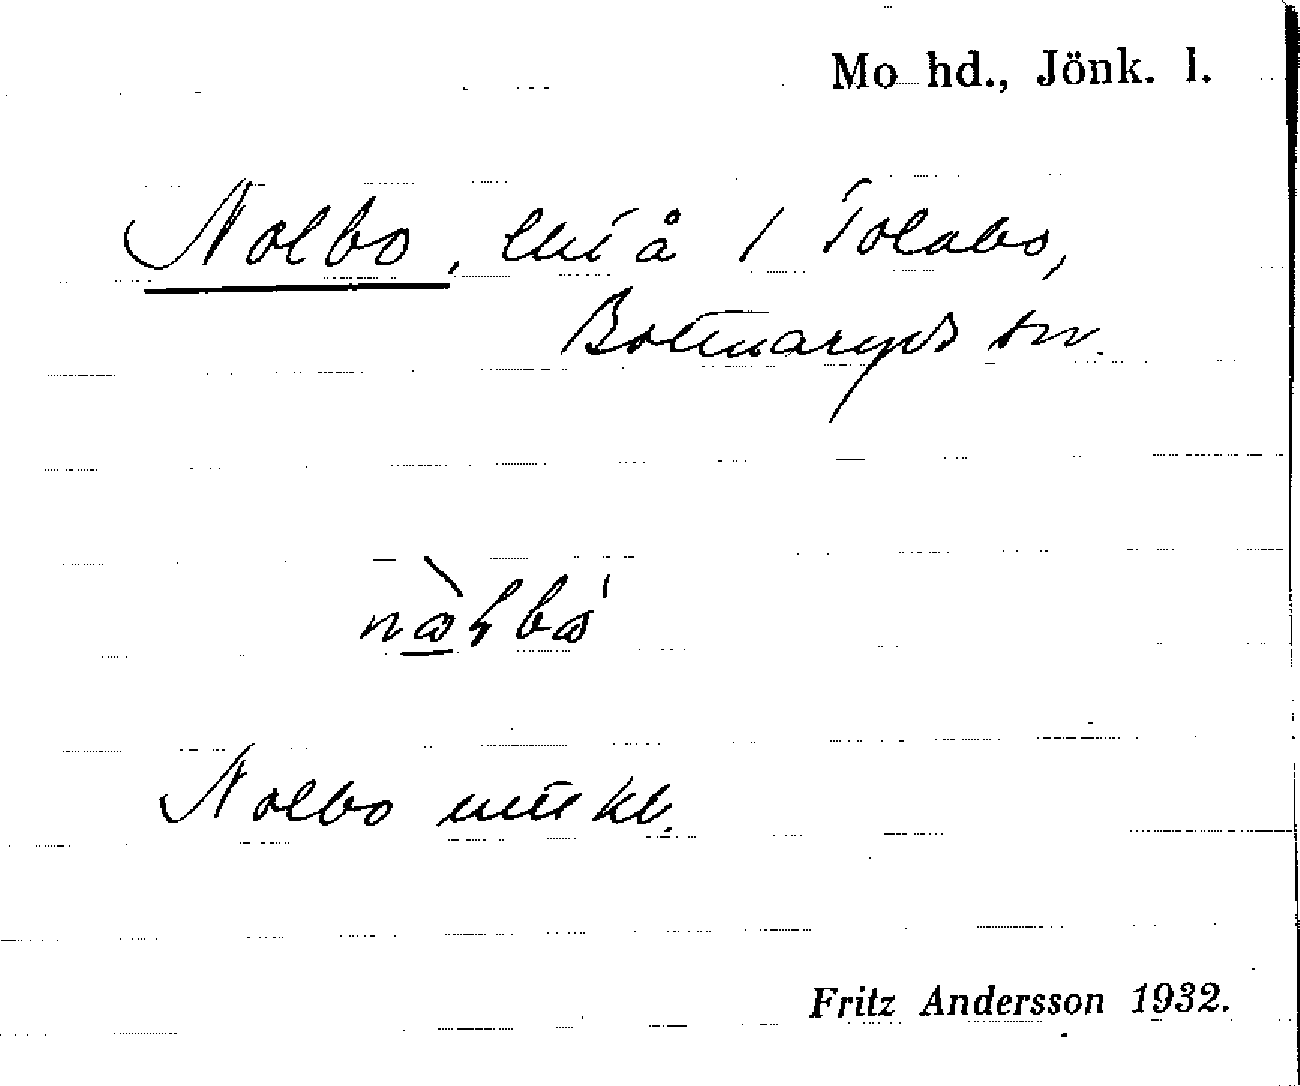 Mo hd., Jönk. l.
Nolbo, lht å 1 Tolabo,
Bottnaryds sn.
Nolbo mtlkt.
Fritz Andersson 1932.